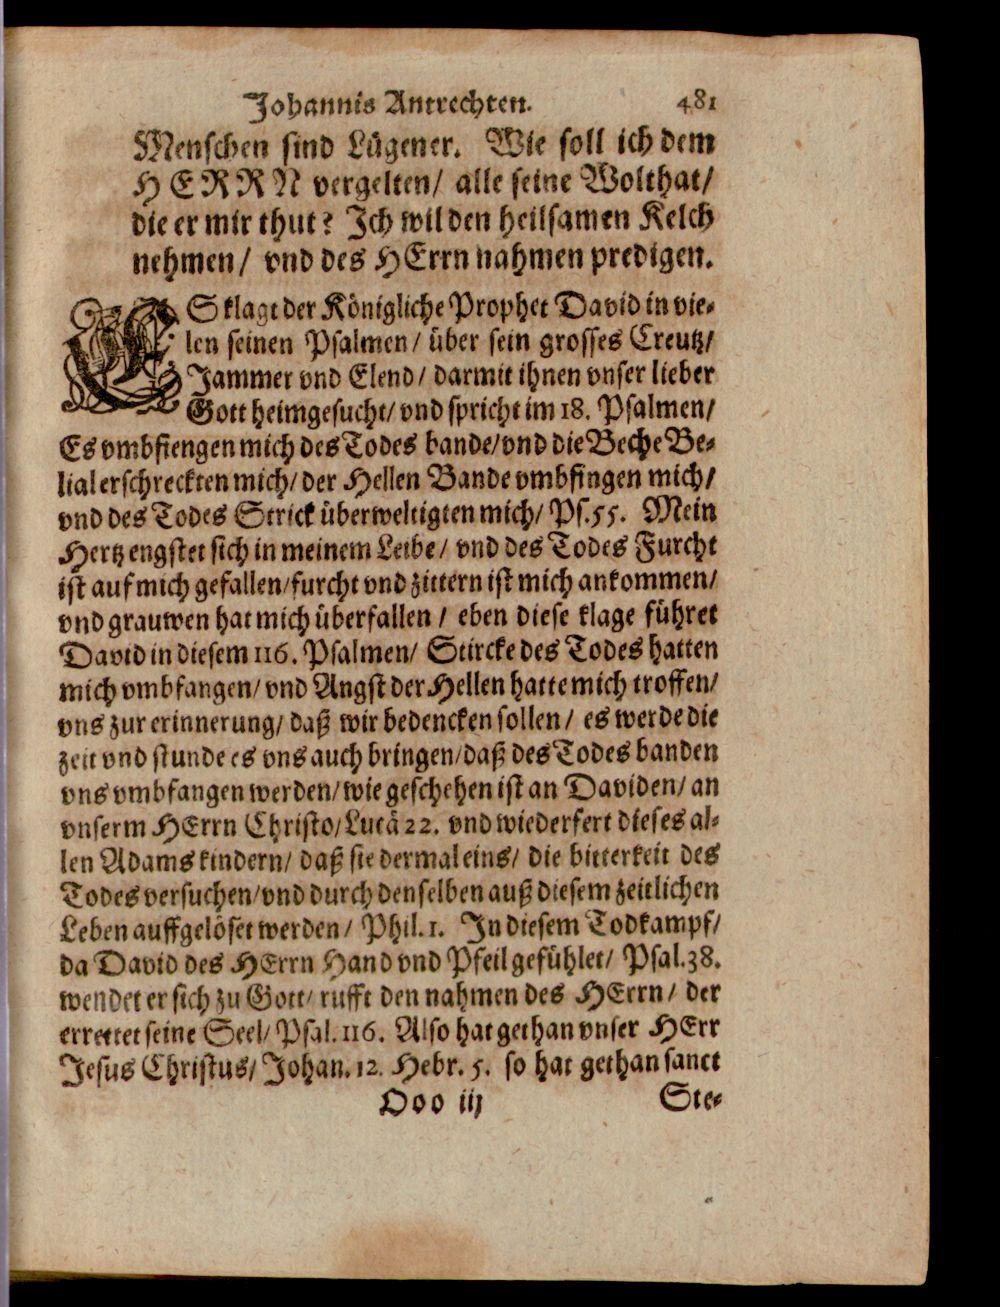 Johannis Antrechten. 481
Menschen sind Lügener. Wie soll ich dem
HERRN vergelten/ alle seine Wolthat/
die er mir thut? Ich wil den heilsamen Kelch
nehmen/ vnd des HErrn nahmen predigen.
ES klagt der Königliche Prophet David in vie-
len seinen Psalmen/ über sein grosses Creutz/
Jammer vnd Elend/ darmit ihnen vnser lieber
Gott heimgesucht/ vnd spricht im 18. Psalmen/
Es vmbfiengen mich des Todes bande/ vnd die Beche Be-
lial erschreckten mich/ der Hellen Bande vmbfingen mich/
vnd des Todes Strick überweltigten mich/ Ps. 55. Mein
Hertz engstet sich in meinem Leibe/ vnd des Todes Furcht
ist auf mich gefallen/ furcht vnd zittern ist mich ankommen/
vnd grauwen hat mich überfallen/ eben diese klage führet
David in diesem 116. Psalmen/ Stircke des Todes hatten
mich vmbfangen/ vnd Angst der Hellen hatte mich troffen/
vns zur erinnerung/ daß wir bedencken sollen/ es werde die
zeit vnd stunde es vns auch bringen/ daß des Todes banden
vns vmbfangen werden/ wie geschehen ist an Daviden/ an
vnserm HErrn Christo/ Lucä 22. vnd wiederfert dieses al-
len Adams kindern/ daß sie dermaleins/ die bitterkeit des
Todes versuchen/ vnd durch denselben auß diesem zeitlichen
Leben auffgelöset werden/ Phil. 1. In diesem Todkampf/
da David des HErrn Hand vnd Pfeil gefühlet/ Psal. 38.
wendet er sich zu Gott/ rufft den nahmen des HErrn/ der
errettet seine Seel/ Psal. 116. Also hat gethan vnser HErr
Jesus Christus/ Johan. 12. Hebr. 5. so hat gethan sanct
Ooo iij Ste-